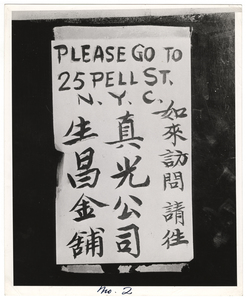 PLEASE GO TO
25 PELL ST.
N. Y. C.
如來訪問請往
真光公司
生昌金舖
No. 2